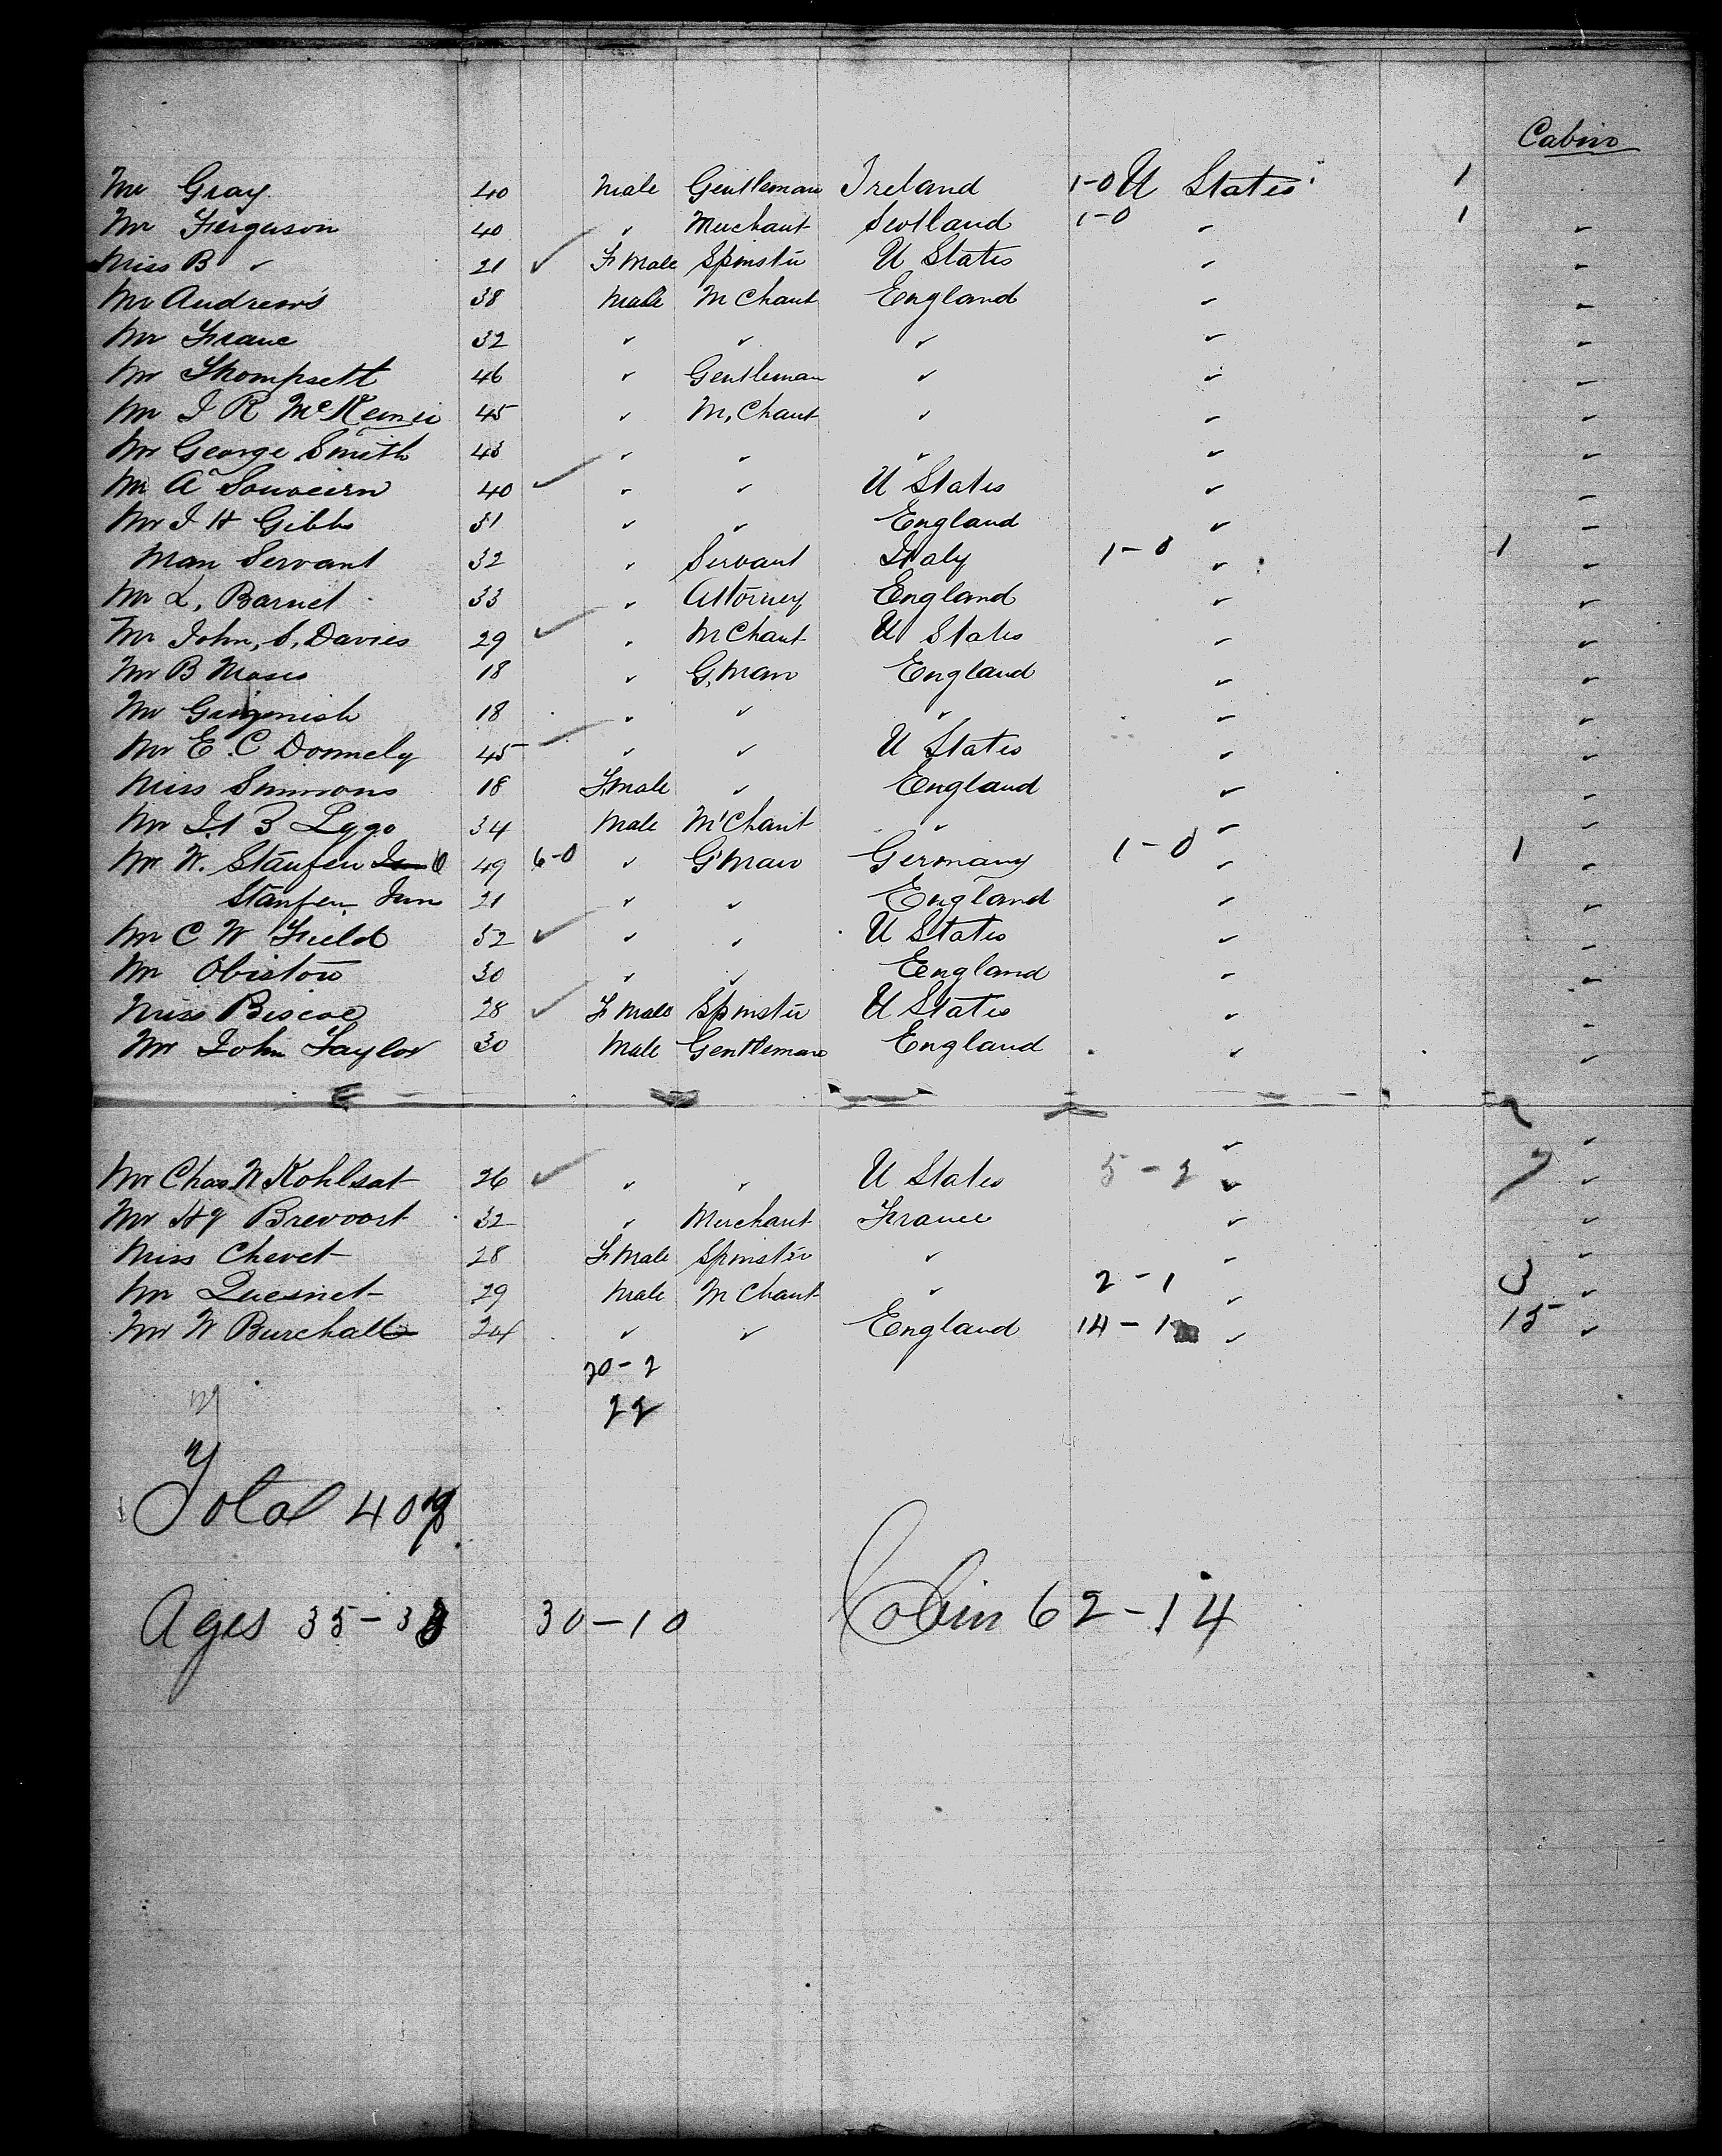 Cabin
Mr Gray 40 Male Gentleman Ireland 1-0 U States 1
Mr Ferguson 40 " Merchant Scotland 1-0 " 1 "
Miss B " 21 ✓ F Male Spinster U States " "
Mr Andrews 38 Male M Chant England " "
Mr Franc 32 " " " " "
Mr Thompsett 46 " Gentleman " " "
Mr J R McKennie 45 " M, Chant " " "
Mr George Smith 43 " " " " "
Mr A Souveirn 40 ✓ " " U States " "
Mr J H Gibbs 31 " " England " "
Man Servant 32 " Servant Italy 1-0 " 1
Mr L, Barnet 33 " Attorney England " "
Mr John, S, Davies 29 ✓ " M Chant U States " "
Mr B Moses 18 " G, Man England " "
Mr 18 " " " " "
Mr E. C Donnely 45 ✓ " " U States " "
Miss Simmons 18 F, male " England " "
Mr Lygo 34 Male M'Chant " " "
Mr W. Staufen 49 6-0 " G'Man Germany 1-0 " 1 "
Staufen Jun 21 " " England " "
Mr C W Field 52 ✓ " " U States " "
Mr Obistow 30 " " England " "
Miss Biscoe 28 ✓ F Male Spinster U States " "
Mr John Taylor 30 Male Gentleman England " "
Mr Chas W Kohlsat 26 ✓ " " U States 5-2 " 7 "
Mr Hy Brevoort 32 " Merchant France " "
Miss Chevet 28 F Male Spinster " " "
Mr Quesnet 29 Male M Chant " 2-1 " 3 "
Mr W Burchall 24 " " England 14-1 " 15 "
20-2
22
Total
Ages 35-33 30-10 Cabin 62-14